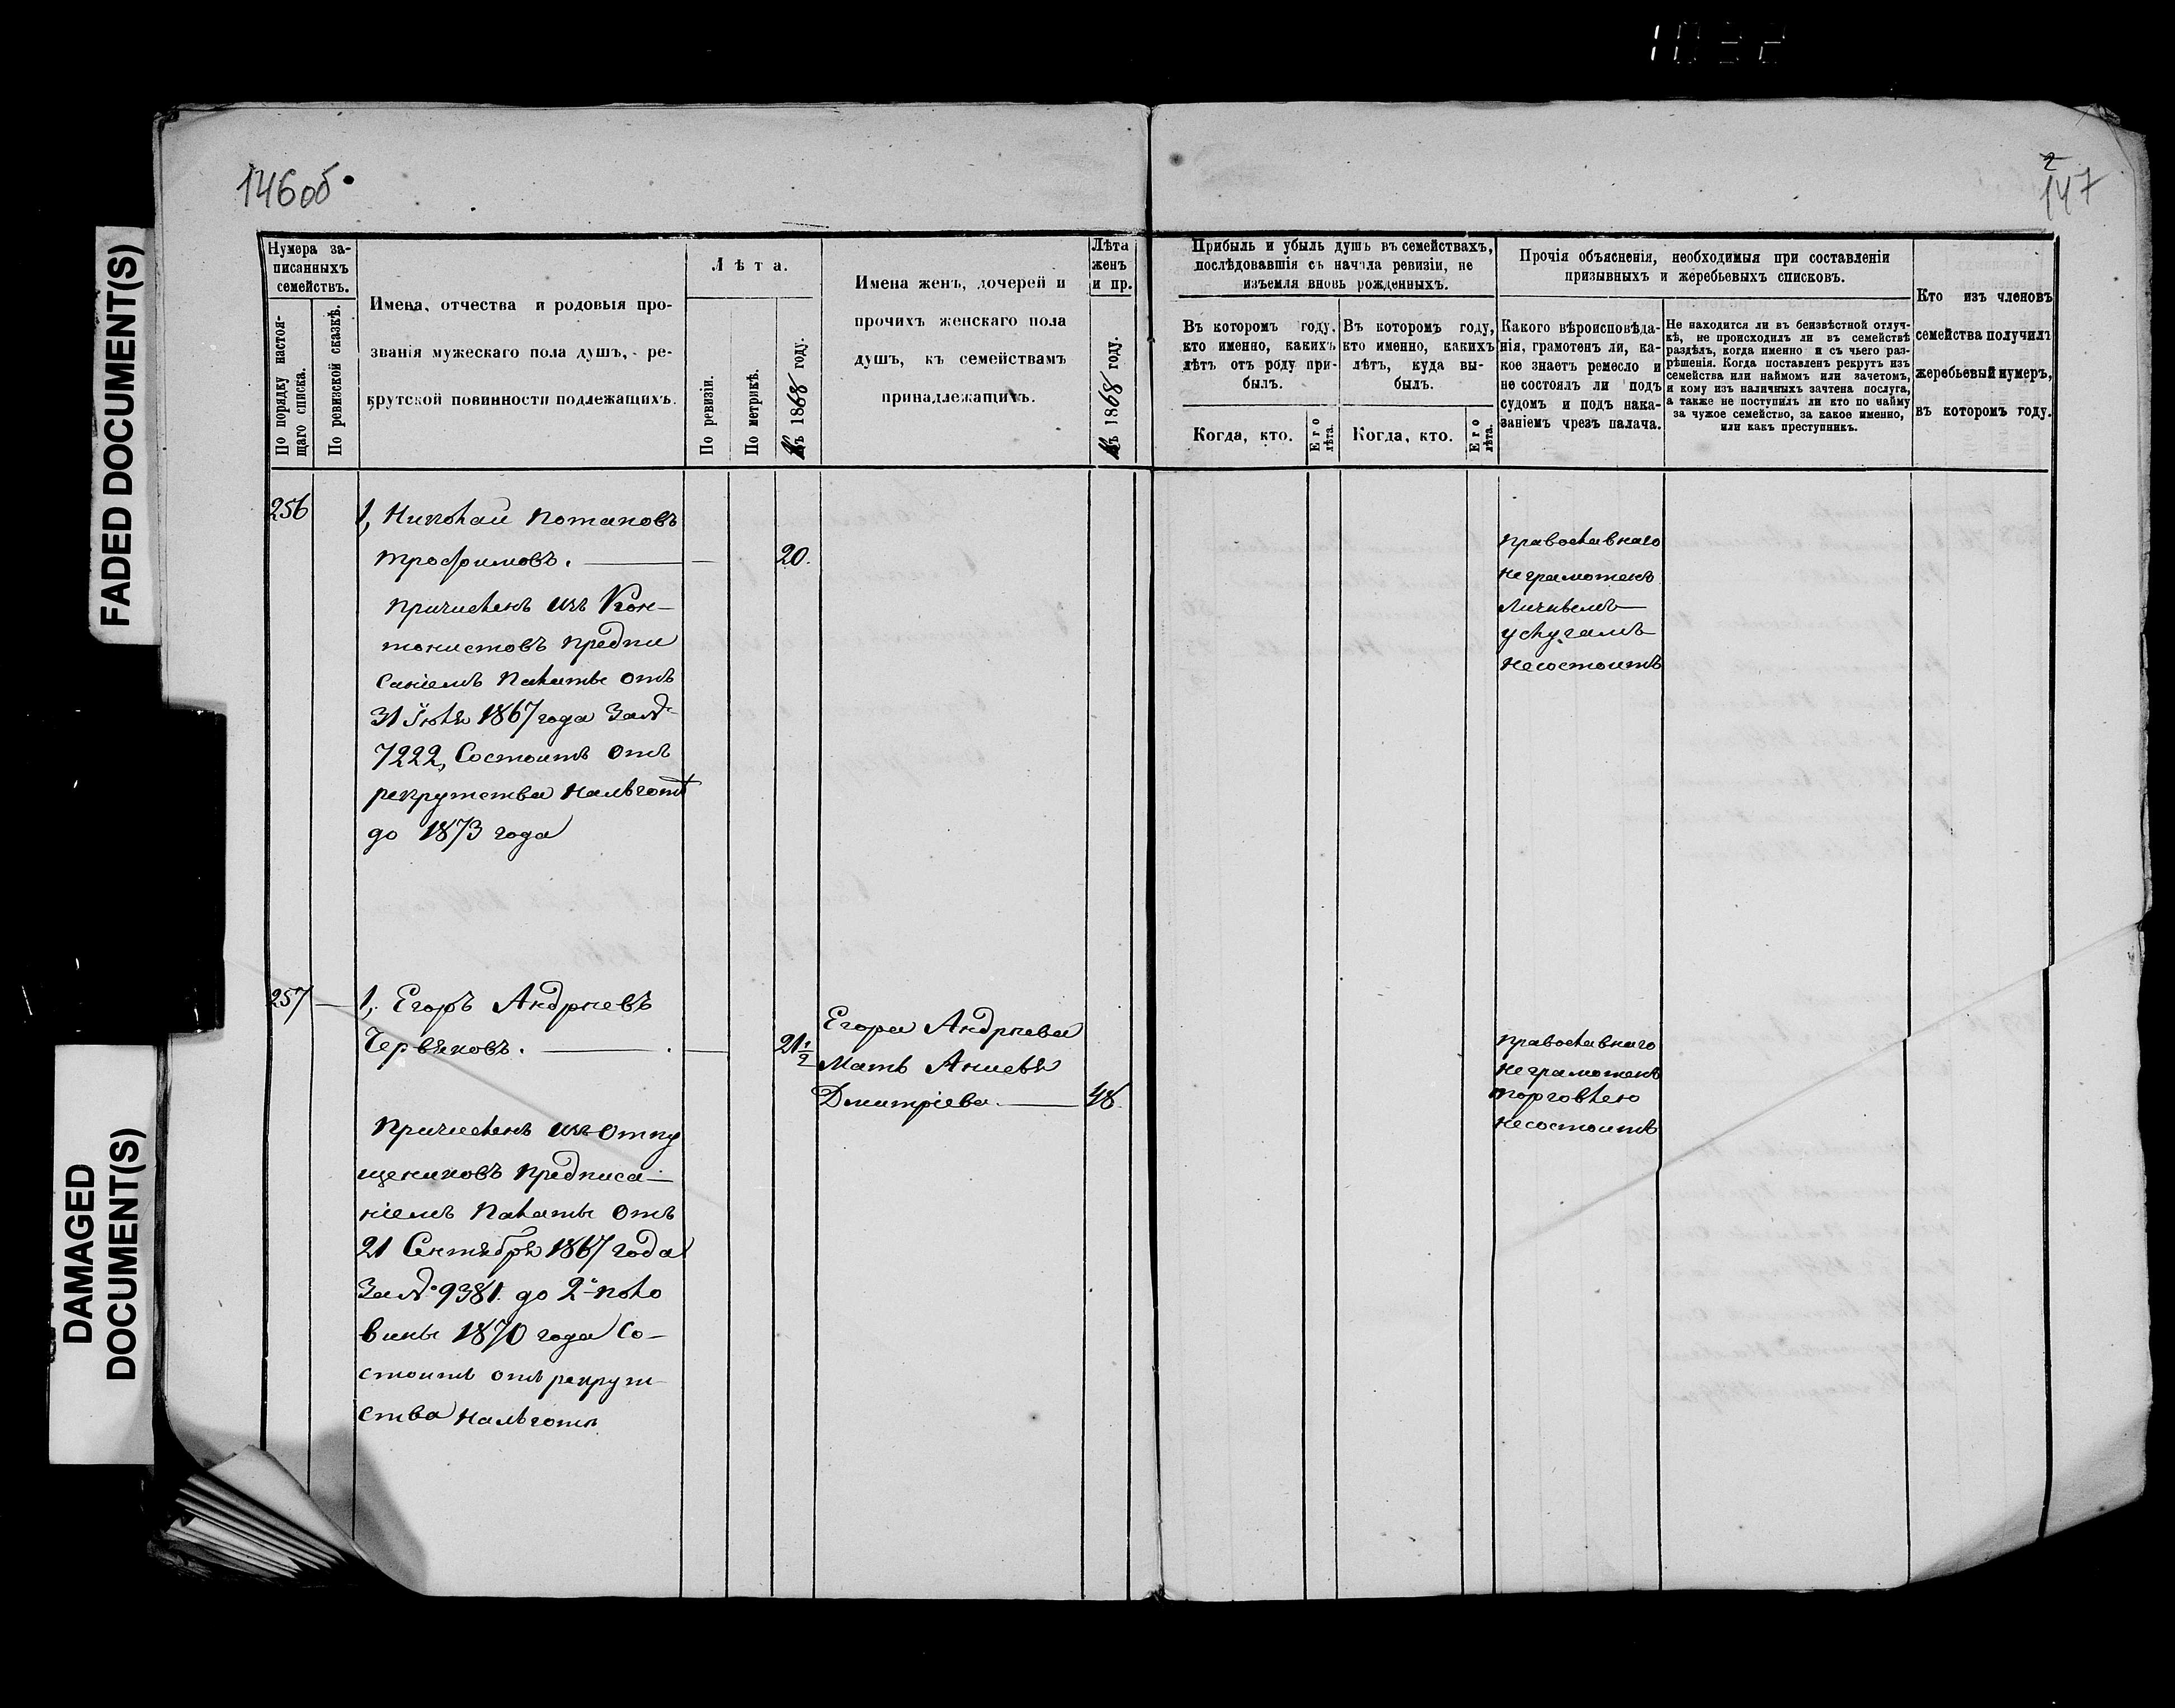 1022
146об
2
147
FADED DOCUMENT(S)
DAMAGED
DOCUMENT(S)
Нумера за-
писанныхъ
семействъ.
По порядку настоя-
щаго списка.
По ревизской сказкѣ.
Имена, отчества и родовыя про-
званія мужескаго пола душъ, ре-
крутской повинности подлежащихъ.
Лѣта.
По ревизіи.
По метрикѣ.
Въ 1868 году.
Имена женъ, дочерей и
прочихъ женскаго пола
душъ, къ семействамъ
принадлежащихъ.
Лѣта
женъ
и пр.
Въ 1868 году.
Прибыль и убыль душъ въ семействахъ,
послѣдовавшія съ начала ревизіи, не
изъемля вновь рожденныхъ.
Въ которомъ году,
кто именно, какихъ
лѣтъ отъ роду при-
былъ.
Когда, кто.
Его
лѣта.
Въ которомъ году,
кто именно, какихъ
лѣтъ, куда вы-
былъ.
Когда, кто.
Его
лѣта.
Прочія объясненія, необходимыя при составленіи
призывныхъ и жеребьевыхъ списковъ.
Какого вѣроисповѣда-
нія, грамотенъ ли, ка-
кое знаетъ ремесло и
не состоялъ ли подъ
судомъ и подъ нака-
заніемъ чрезъ палача.
Не находится ли въ безизвѣстной отлуч-
кѣ, не происходилъ ли въ семействѣ
раздѣлъ, когда именно и съ чьего раз-
рѣшенія. Когда поставленъ рекрутъ изъ
семейства или наймомъ или зачетомъ,
и кому изъ наличныхъ зачтена послуга,
а также не поступилъ ли кто по найму
за чужое семейство, за какое именно,
или какъ преступникъ.
Кто изъ членовъ
семейства получилъ
жеребьевый нумеръ,
въ которомъ году.
256
1, Николай Потаповъ
Трофимовъ. — 20.
Причисленъ изъ Кон-
тонистовъ предпи
саніемъ Палаты отъ
31 Іюля 1867 года За №
7222, Состоитъ отъ
рекрутства на льготѣ
до 1873 года
православнаго
неграмотенъ
личнымъ
услугамъ
несостоитъ
257 — 1, Егоръ Андреевъ
Червяковъ. — 21 1/2
Причисленъ изъ Отпу
щениковъ предписа-
ніемъ Палаты отъ
21 Сентября 1867 года
За № 9381. до 2й поло
вины 1870 года Со-
стоитъ отъ рекрут
ства на льготѣ
Егора Андреева
Мать Анисья
Дмитріева. — 48
православнаго
неграмотенъ
торговлею
несостоитъ